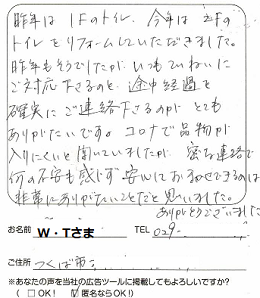 昨年は1Fのトイレ、今年は2Fの
トイレをリフォームしていただきました。
昨年もそうでしたが、いつもていねいに
ご対応下さるのと、途中経過を
確実にご連絡下さるのが とても
ありがたいです。コロナで品物が
入りにくいと聞いていましたが、密な連絡で
何の不安も感じず 安心しておまかせできるのは
非常にありがたいことだと思いました。
ありがとうございました
お名前 W・Tさま TEL 029-
ご住所 つくば市
※あなたの声を当社の広告ツールに掲載してもよろしいですか?
( □OK! ☑匿名ならOK!)